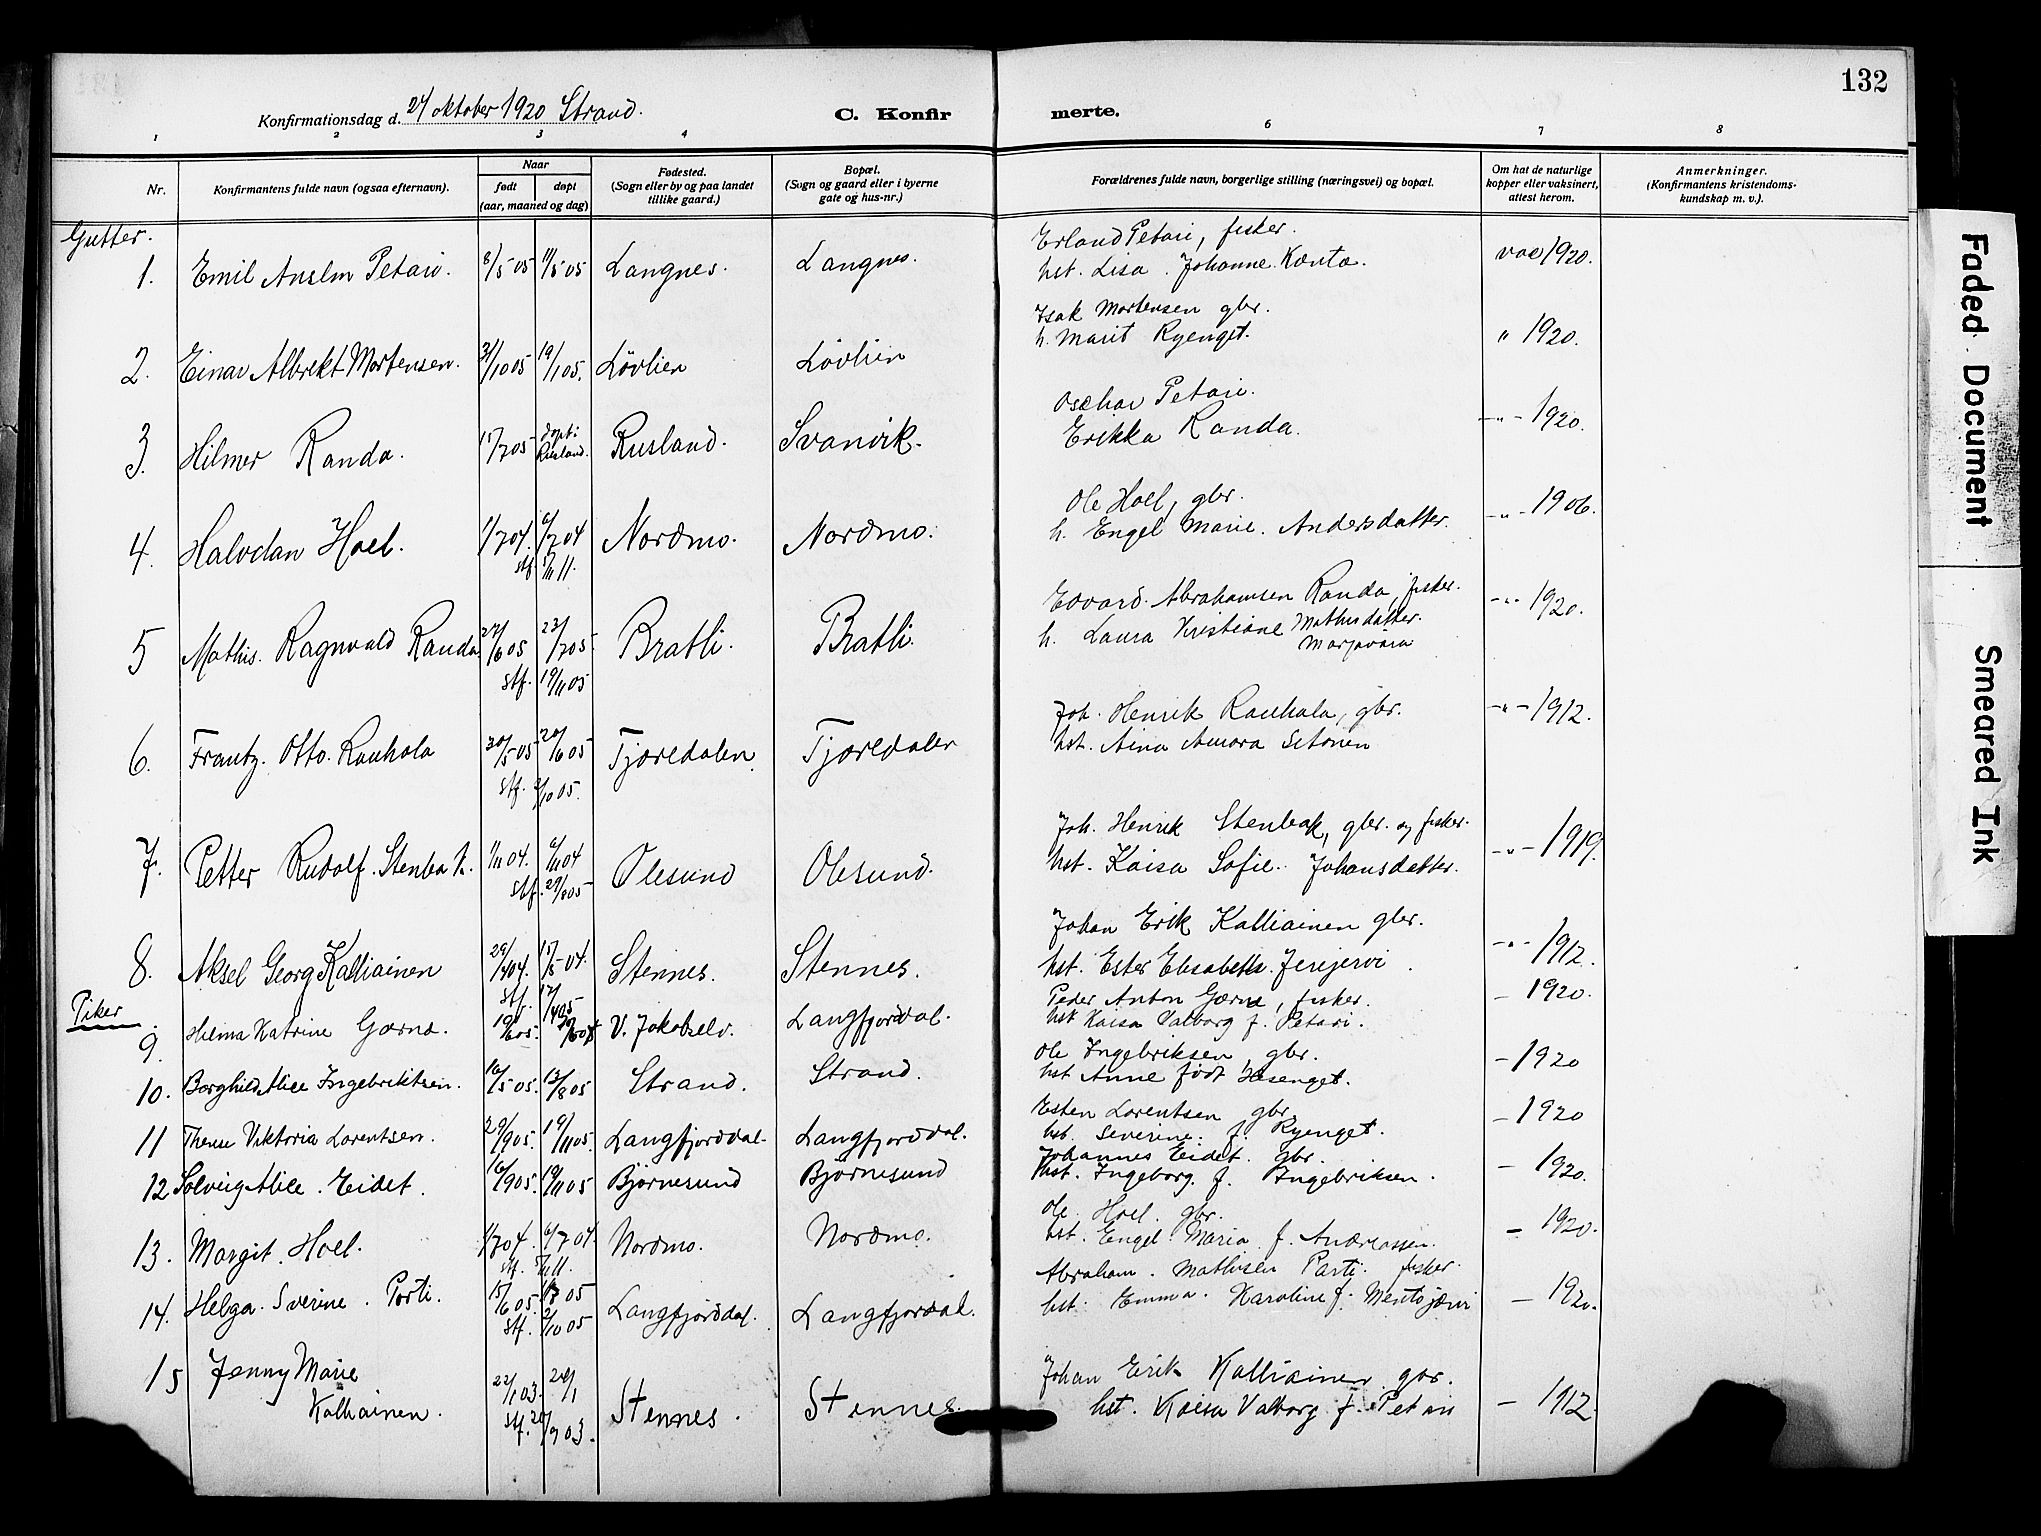 132
Konfirmationsdag d. 24 oktober 1920 Strand.
C. Konfir merte.
1 2 3 4 6 7 8
Nr.
Konfirmantens fulde navn (ogsaa efternavn).
Naar
født døpt
(aar, maaned og dag)
Fødested.
(Sogn eller by og paa landet
tillike gaard.)
Bopæl.
(Sogn og gaard eller i byerne
gate og hus-nr.)
Forældrenes fulde navn, borgerlige stilling (næringsvei) og bopæl.
Om hat de naturlige
kopper eller vaksinert,
attest herom.
Anmerkninger.
(Konfirmantens kristendoms-
kundskap m. v.).
Gutter.
1. Emil Anslm Petari. 8/5 05 11/5 05 Langnes. Langnes.
Erland Petari, fisker.
hst. Lisa. Johanne. Kænta.
vac 1920.
2. Einar Albrekt Mortensen. 31/10 05 19/1 05. Løvlien Løvlien
Isak Mortensen gbr.
h. Marit Ryenget.
" 1920.
3. Hilmer Randa. 15/7 05 døpt i Rusland. Rusland. Svanvik.
Oschar Petari.
Erikka Randa.
-"- 1920.
4. Halvdan Hoel. 1/7 04. 6/7 04 Nordmo. Nordmo.
stf. 5/11 11.
Ole Hoel, gbr.
h. Engel Marie. Andersdatter.
-"- 1906.
5 Mathis. Ragnvald Randa 27/6 05 23/7 05 Bratli. Bratli.
stf. 19/11 05
Edvard. Abrahamsen Randa, fisker.
h. Laura Kristiane Mathisdatter.
Marjavara
-"- 1920.
6. Frantz. Otto. Rauhala 30/5 05 20/6 05 Tjæredalen Tjæredalen
stf. 2/10 05.
Joh. Henrik Rauhala, gbr.
hst. Aina Amora Sitonen
-"- 1912.
7. Petter Rudolf. Stenbak. 1/11 04. 6/11 04 Olesund Olesund.
stf. 29/8 05
Joh. Henrik Stenbak, gbr. og fisker.
hst. Kaisa Sofie. Johansdatter.
-"- 1919.
8. Aksel Georg Kalliainen 29/4 04. 15/5 04. Stennes. Stennes.
stf. 17/4 05
Johan Erik Kalliainen gbr.
hst. Ester Elisabeth. Jerijervi.
-"- 1912.
Piker.
9. Helma Katrine Gærne. V. Jakobselv. Langfjorddal.
Peder Anton Gærne, fisker.
hst Kaisa Valborg f. Petari.
- 1920.
10. Borghild Alice Ingebriktsen. 16/5 05. 13/8 05 Strand. Strand.
Ole Ingebriksen, gbr.
hst Anne født Hasenget.
- 1920
11 Therese Viktoria Lorentsen. 29/9 05. 19/11 05. Langfjorddal. Langfjorddal.
Esten Lorentsen gbr.
hst. Severine. f. Ryenget.
- 1920
12 Solveig Alice. Eidet. 16/9 05. 19/11 05 Bjørnesund Bjørnesund
Johannes Eidet. gbr.
hst. Ingeborg. f. Ingebriksen.
- 1920.
13. Margit. Hoel. 1/7 04. 6/7 04. Nordmo. Nordmo.
stf. 5/11 11.
Ole Hoel. gbr.
hst. Engel Maria f. Andreassen.
- 1920.
14. Helga. Sverine. Porti. 15/6 05. Langfjorddal. Langfjorddal.
stf. 2/10 05
Abraham. Mathisen Parti. fisker.
hst. Emma. Karoline f. Mentojærvi
- 1920.
15 Jenny Marie
Kalliainen. 22/1 03. Stennes. Stennes.
stf. 20/9 03.
Johan Erik Kalliainen gbr.
hst. Kaisa Valborg f. Petari
- 1912.
Faded Document
Smeared Ink